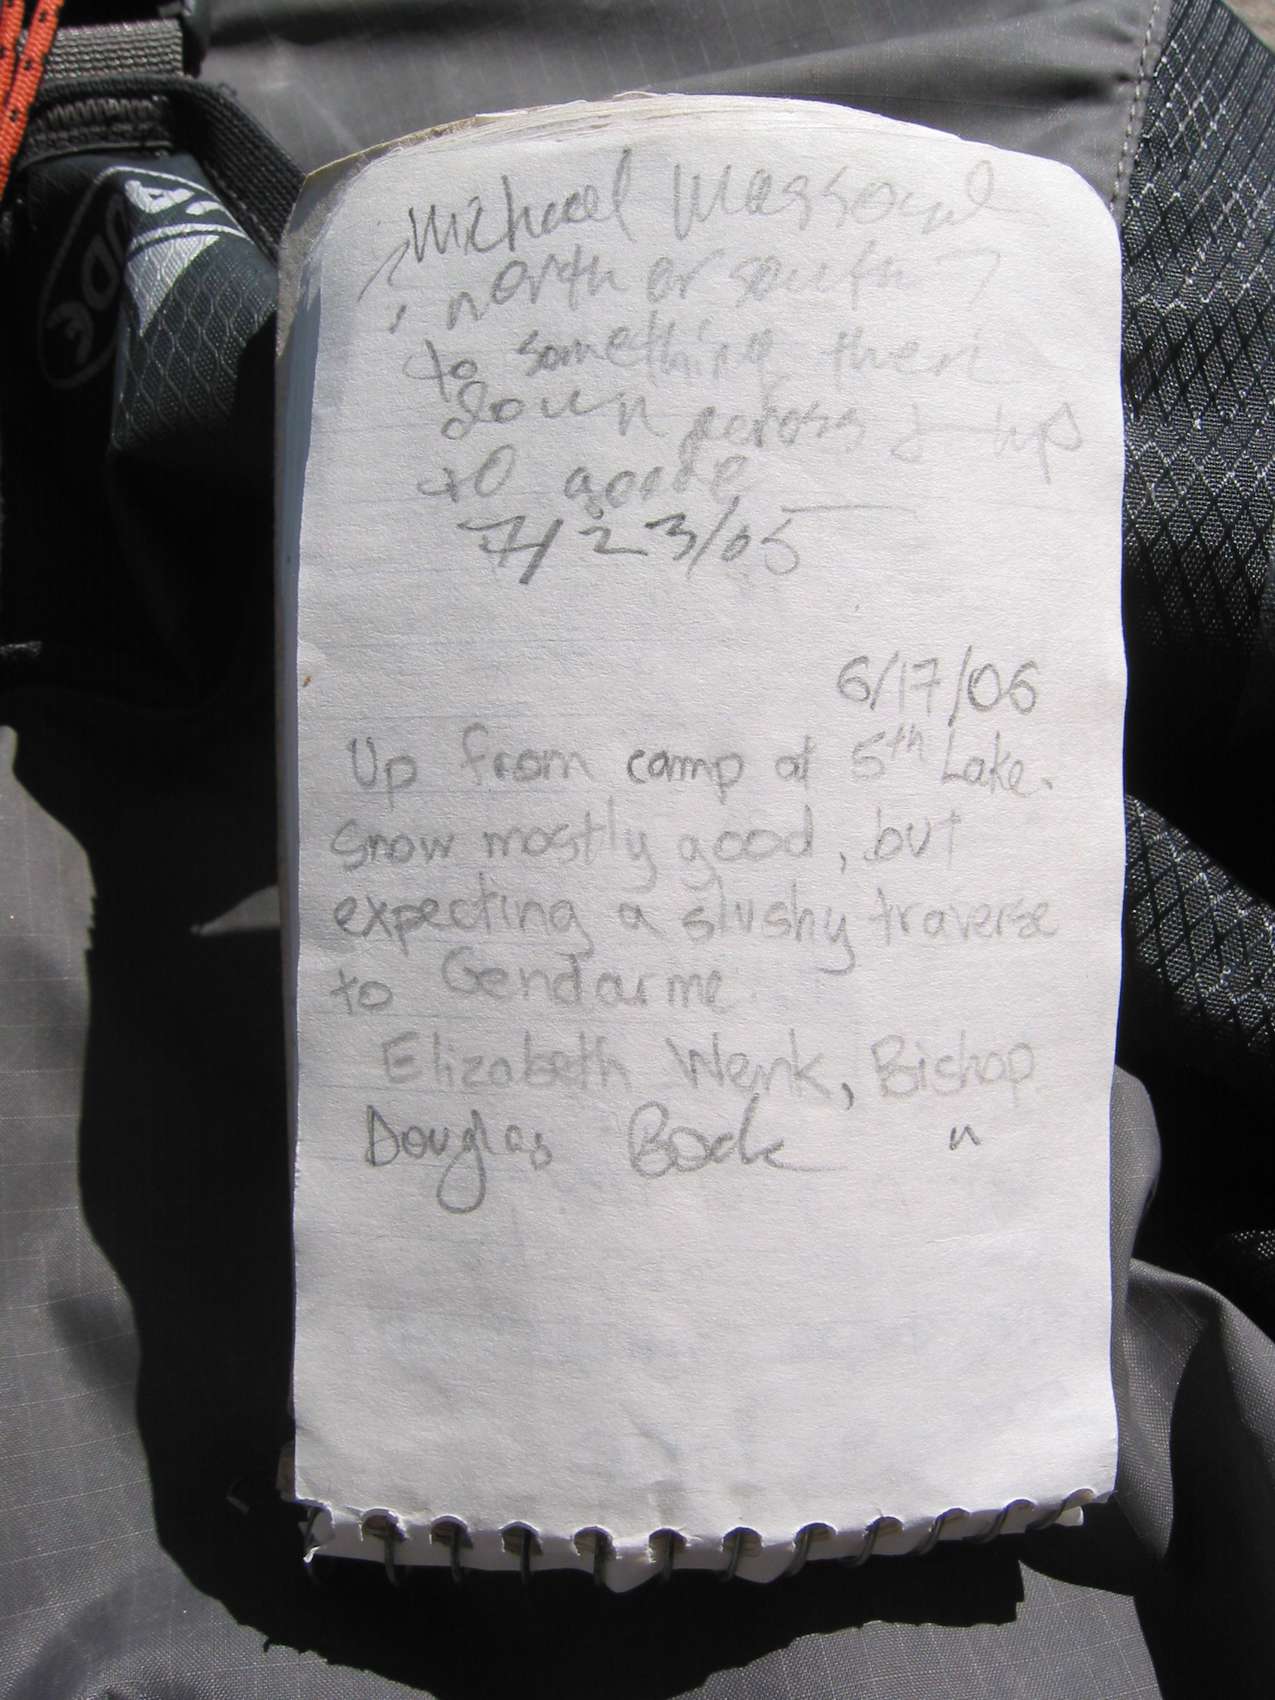 Michael
north or south ?
to something then
down across & up
to goode
7/23/05
6/17/06
Up from camp at 5th Lake.
Snow mostly good, but
expecting a slushy traverse
to Gendarme.
Elizabeth Wenk, Bishop
Douglas Bock "